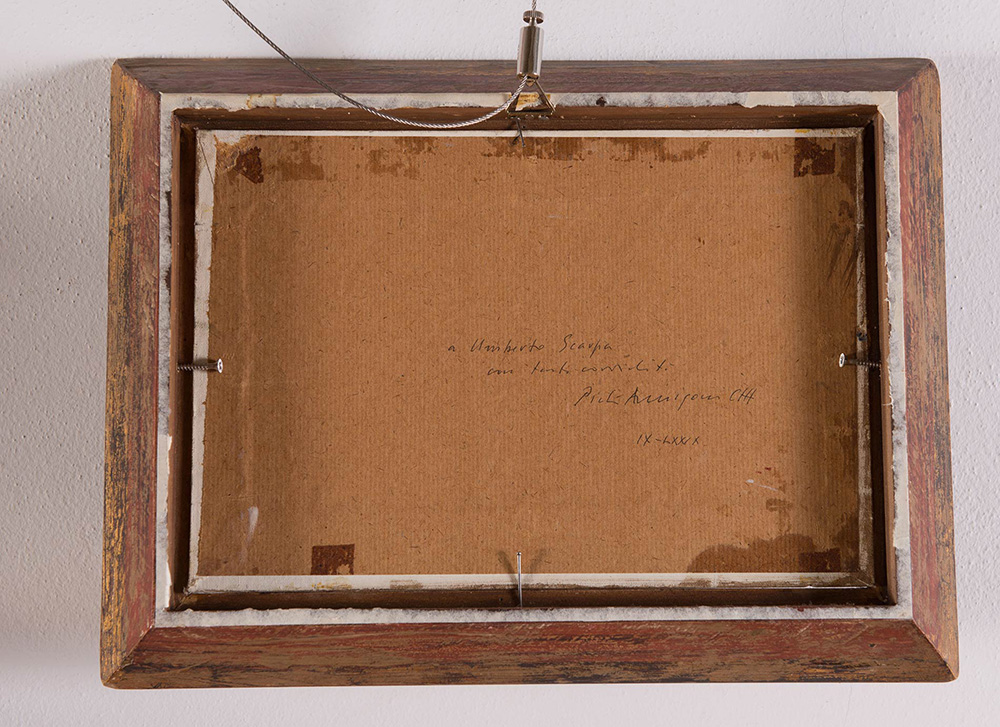 a Umberto Scarpa
con tanta cordialità
Pietro Annigoni
IX-LXXIX